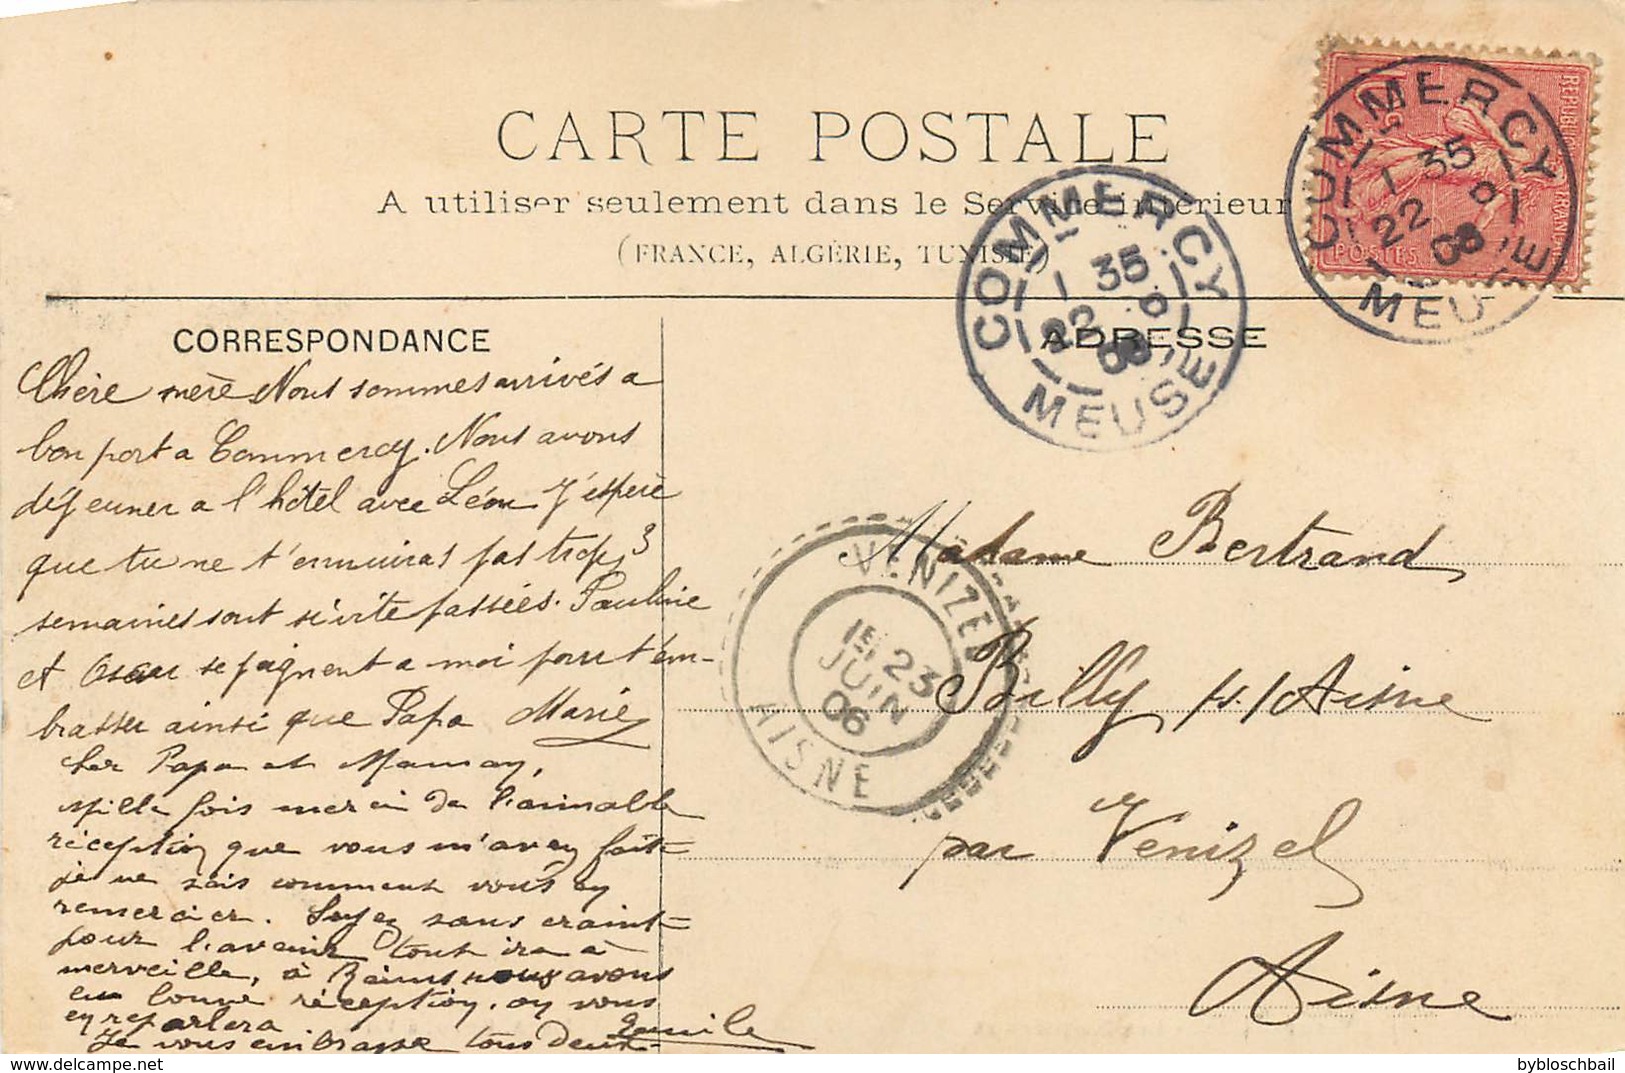 CARTE POSTALE
A utiliser seulement dans le Service intérieur
(FRANCE, ALGÉRIE, TUNISIE)
CORRESPONDANCE
Chère mère Nous sommes arrivés a
bon port a Commercy. Nous avons
déjeuner a l'hôtel avec Léon J'espère
que tu ne t'ennuiras pas trop, 3
semaines sont si vite passées. Pauline
et Oscar se joignent a moi pour t'em-
brasser ainsi que Papa Marie
cher Papa et Maman,
Mille fois merci de l'aimable
réception que vous m'avez fait=
je ne sais comment vous en
remercier. Soyez sans craint=
pour l'avenir tout ira à
merveille, à Reims nous avons
eu bonne réception, on vous
en reparlera
Je vous embrasse tous deux
Emile
ADRESSE
Madame Bertrand
Billy s/Aisne
par Venizel
Aisne
COMMERCY
1 35
22
MEUSE
COMMERCY
1 35
22
MEUSE
REPUBLIQUE FRANÇAISE
POSTES
VENIZEL
1E 23
JUIN
06
AISNE
bybloschbail